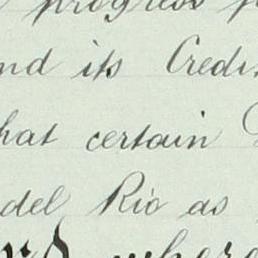 progress
and its Credi
that certain
del Rio as
where